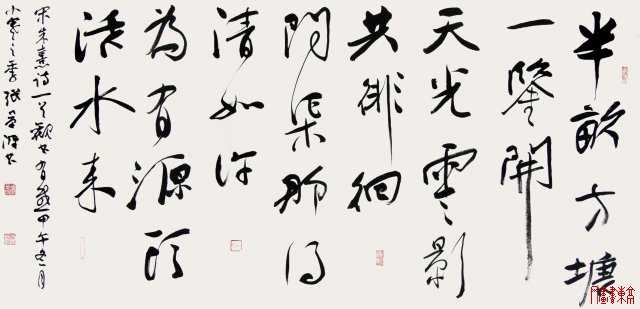 半畝方塘
一鑒開
天光雲影
共徘徊
問渠那得
清如許
為有源頭
活水來
宋朱熹詩一首觀書有感甲午冬月
小寒之季張